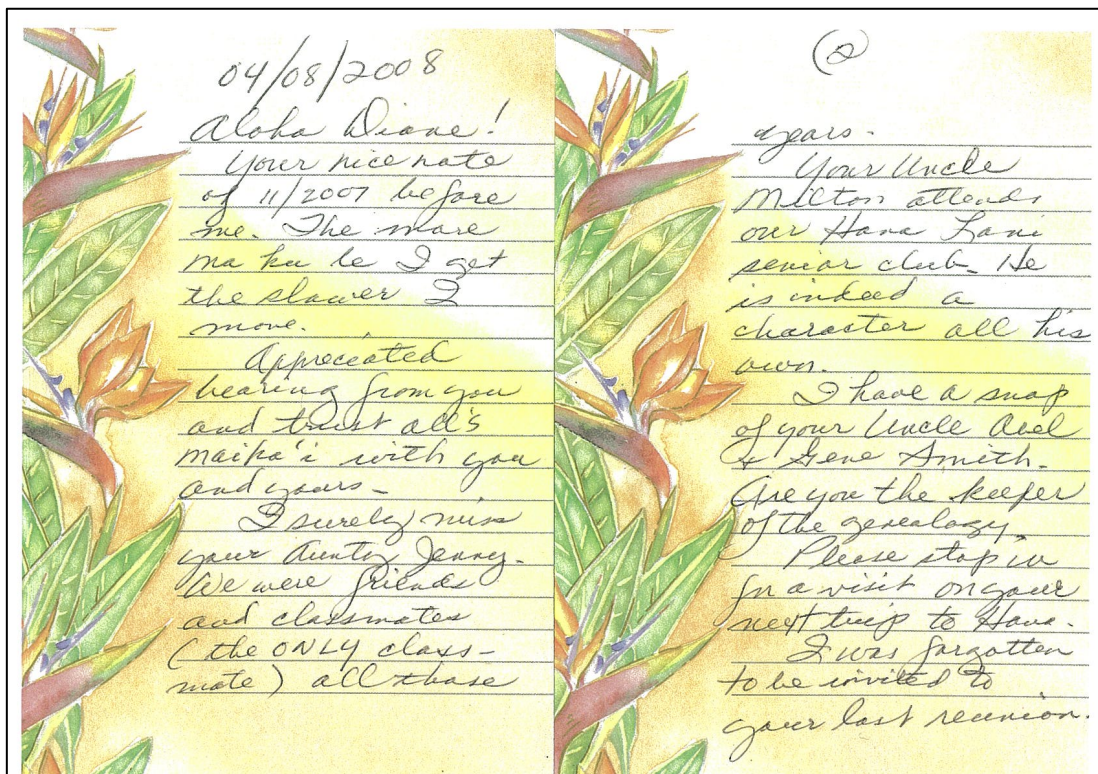 04/08/2008
Aloha Diane!
Your nice note
of 11/2007 before
me. The more
ma ku le I get
the slower I
move.
Appreciated
hearing from you
and trust all's
maika'i with you
and yours-
I surely miss
your Aunty Jenny-
We were friends
and classmates
(the ONLY class-
mate) all those
(2)
years-
Your Uncle
Milton attends
our Hana Lani
senior club- He
is indeed a
character all his
own.
I have a snap
of your Uncle
& Gene Smith-
Are you the keeper
of the genealogy.
Please stop in
for a visit on your
next trip to Hana-
I was forgotten
to be invited to
your last reunion.